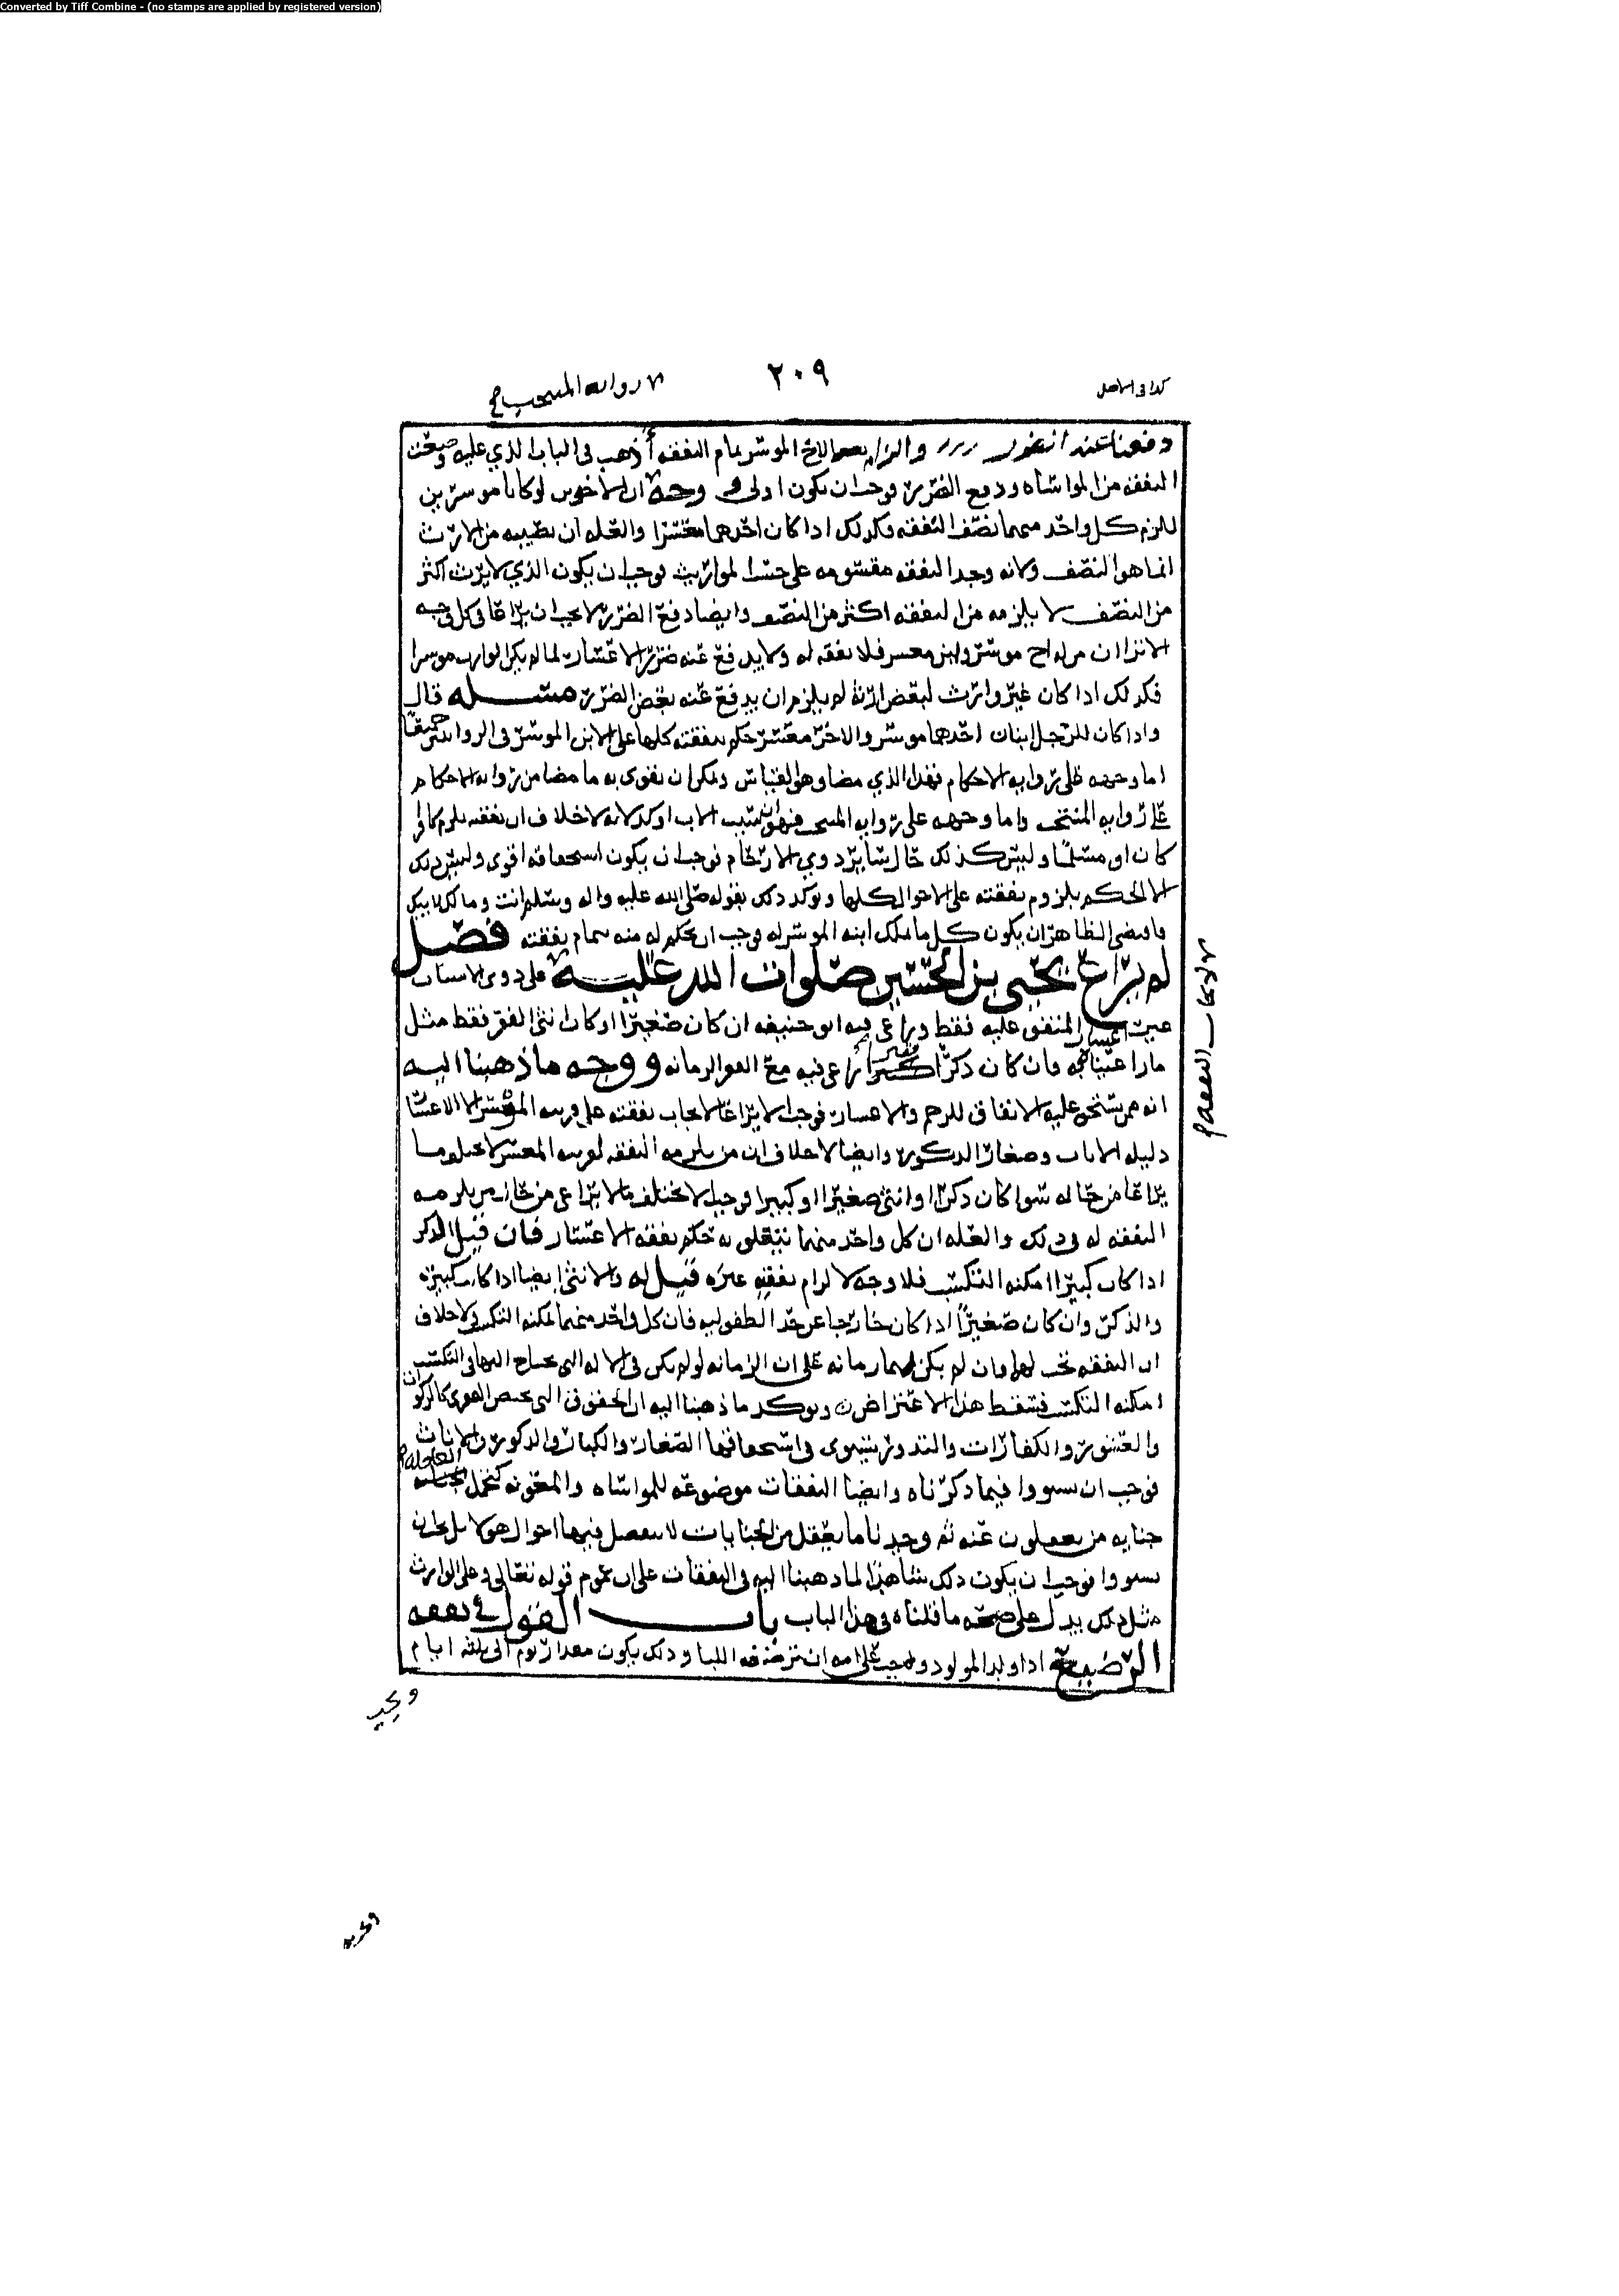 Converted by Tiff Combine - (no stamps are applied by registered version)
كذا في الاصل
٢٠٩
رواية المنتخب
والزام الاخ الموسر تمام النفقة أذهب في الباب الذي عليه وضعت
النفقة من المواساة ودفع الضرر فوجب ان يكون اولى وجه ان الاخوين لو كانا موسرين
للزم كل واحد منهما نصف النفقة فكذلك اذا كان احدهما معسرا والعلة ان نصيبه من الارث
انما هو النصف ولانه وجد النفقة مقسومة على حسب المواريث فوجب ان يكون الذي لا يرث اكثر
من النصف لا يلزمه من النفقة اكثر من النصف وايضا دفع الضرر لا يجب ان يراعا في كل وجه
الا ترا ان من له اخ موسر وابن معسر فلا نفقة له ولا يدفع عنه ضرر الاعسار لما لم يكن الوارث موسرا
فكذلك اذا كان غير وارث لبعض ارثه لم يلزم ان يدفع عنه بعض الضرر مسئلة قال
واذا كان للرجل ابنان احدهما موسر والاخر معسر حكم بنفقته كلها على الابن الموسر في الروايتين جميعا
اما وجهه على رواية الاحكام فهذا الذي مضا وهو القياس ويمكن ان يقوى به ما مضا من رواية الاحكام
على رواية المنتخب واما وجهه على رواية المنتخب فهو ان سبب الاب اوكد لانه لا خلاف ان نفقته يلزم كافرا
كان او مسلما وليس كذلك حال سائر ذوي الارحام فوجب ان يكون استحقاقه اقوى وليس ذلك
الا الحكم بلزوم نفقته على الاحوال كلها ويوكد ذلك بقوله صلى الله عليه واله وسلم انت ومالك لابيك
فاقتضى الظاهر ان يكون كل ما ملك ابنه الموسر له فوجب ان يحكم له منه بتمام نفقته فصل
لم يراع يحيى بن الحسين صلوات الله عليه على ذوي الانساب
غير اعسار المنفق عليه فقط وراعى فيه ابو حنيفة ان كان صغيرا او كان انثى الفقر فقط مثل
ما راعيناه وان كان ذكرا كبيرا راعى فيه مع الفقر الزمانة ووجه ما ذهبنا اليه
انه ممن يستحق عليه الانفاق للرحم والاعسار فوجب الا يراعا لايجاب نفقته على قريبه الموسر الا الاعسار
دليله الاناث وصغار الذكور وايضا لا خلاف ان من يلزمه النفقة لقريبه المعسر لا يختلف ما
يراعا من حاله سوا كان ذكرا او انثى صغيرا او كبيرا فوجب الا يختلف ما يراعى من حال من يلزمه
النفقة له في ذلك والعلة ان كل واحد منهما يتعلق به حكم نفقة الاعسار فان قيل الذكر
اذا كان كبيرا امكنه التكسب فلا وجه لالزام نفقته غيره قيل له والانثى ايضا اذا كانت كبيرة
والذكر وان كان صغيرا اذا كان خارجا عن حد الطفولية فان كل واحد منهما يمكنه التكسب ولا خلاف
ان النفقة تجب لهما وان لم يكن بهما زمانة على ان الزمانة لو لم يكن في الالة التي يحتاج اليها في التكسب
امكنه التكسب فسقط هذا الاعتراض ويوكد ما ذهبنا اليه ان الحقوق التي تختص الفقرى كالزكوات
والعشور والكفارات والنذور يستوى في استحقاقها الصغار والكبار والذكور والاناث
فوجب ان يستووا فيما ذكرناه وايضا النفقات موضوعة للمواساة والمعونة كتحمل العاقلة
جناية من يعقلون عنه ثم وجدنا ما يعقل من الجنايات لا يفصل فيها احوال هولاء بل يجب ان
يستووا فوجب ان يكون ذلك شاهدا لما ذهبنا اليه في النفقات على ان عموم قوله تعالى وعلى الوارث
مثل ذلك يدل على صحة ما قلناه في هذا الباب باب القول في نفقة
الرضيع اذا ولد المولود وجب على امه ان ترضعه اللبا وذلك يكون مقدار يوم الى ثلثة ايام
لايجاب النفقة